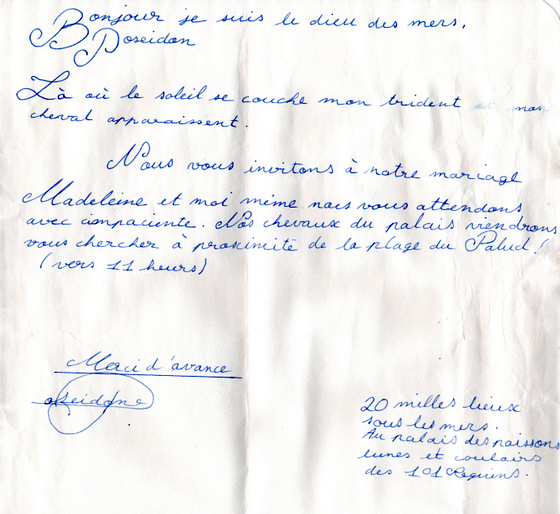 Bonjour je suis le dieu des mers,
Poseidon
Là où le soleil se couche mon trident et mon
cheval apparaissent.
Nous vous invitons à notre mariage
Madeleine et moi même nous vous attendons
avec impaciente. Nos chevaux du palais viendrons
vous chercher à proximité de la plage du Palud !
(vers 11 heurs)
Merci d'avance
oseidone
20 milles lieux
sous les mers.
Au palais des poissons
lunes et couloirs
des 101 Requins.